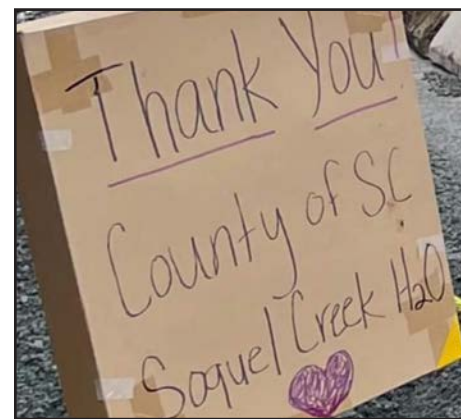 Thank You!
County of SC
Soquel Creek H2O